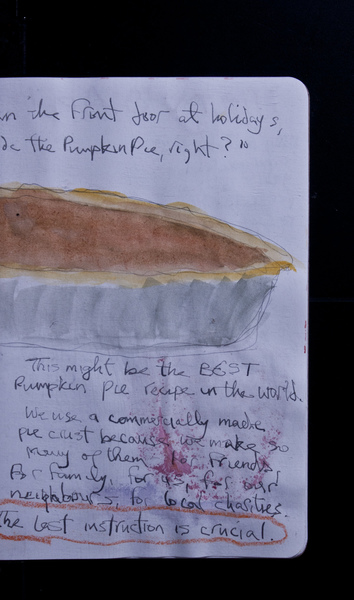 in the front door at holidays,
de the Pumpkin Pie, right?"
This might be the BEST
Pumpkin Pie recipe in the world.
We use a commercially made
pie crust because we make so
many of them for friends,
for family, for us, for our
neighbours, for local charities.
The last instruction is crucial.